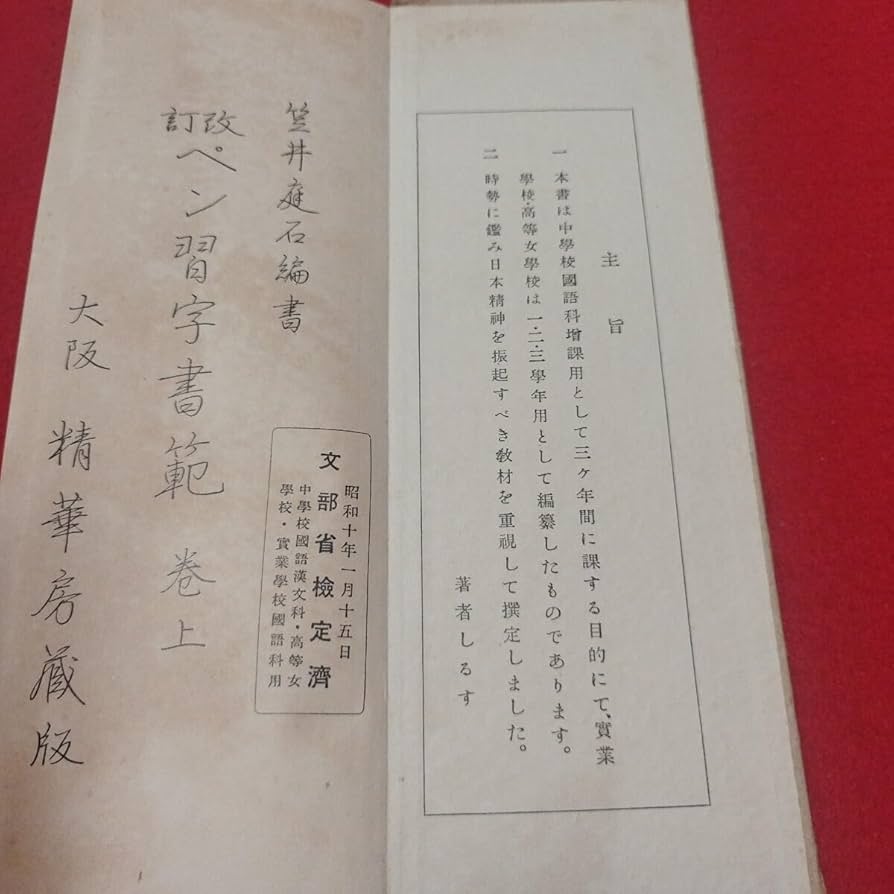 主旨
一 本書は中學校國語科增課用として三ケ年間に課する目的にて、實業
學校・高等女學校は一・二・三學年用として編纂したものであります。
二 時勢に鑑み日本精神を振起すべき教材を重視して撰定しました。
著者しるす
笠井庭石編書
改訂 ペン習字書範 巻上
大阪 精華房蔵版
昭和十年一月十五日
文部省檢定濟
中學校國語漢文科・高等女
學校・實業學校國語科用